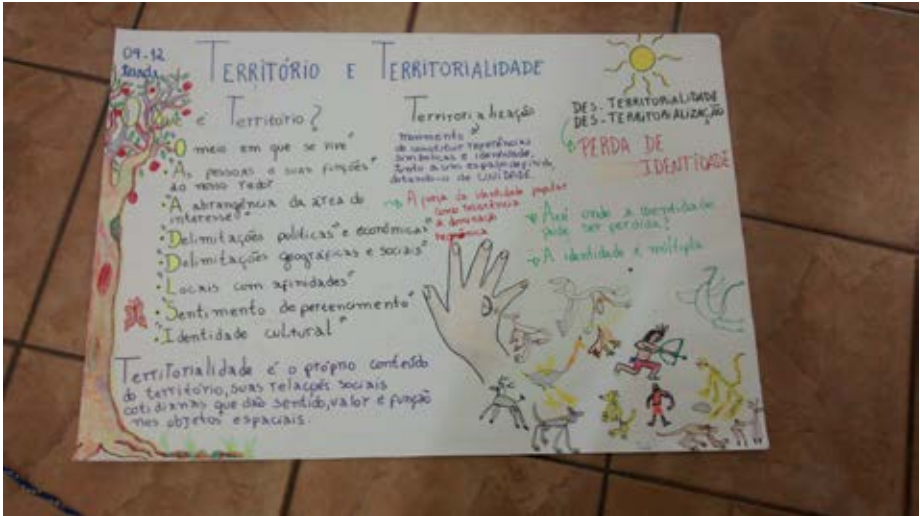 09-12
tarde
TERRITÓRIO E TERRITORIALIDADE
Que é Território?
"O meio em que se vive"
"As pessoas e suas funções
ao nosso redor"
"A abrangência da área de
interesse"
"Delimitações políticas e econômicas"
"Delimitações geográficas e sociais"
"Locais com afinidades"
"Sentimento de pertencimento"
"Identidade cultural"
Territorialidade é o próprio conteúdo
do território, suas relações sociais
cotidianas que dão sentido, valor e função
nos objetos espaciais.
Territorialização
movimento
de constituir referências
simbólicas e identidade,
junto a um espaço definido,
dotando-o de UNIDADE.
A força da identidade popular
como resistência
a dominação
hegemônica
DES-TERRITORIALIDADE
DES-TERRITORIALIZAÇÃO
PERDA DE
IDENTIDADE
Até onde a identidade
pode ser perdida?
A identidade é múltipla